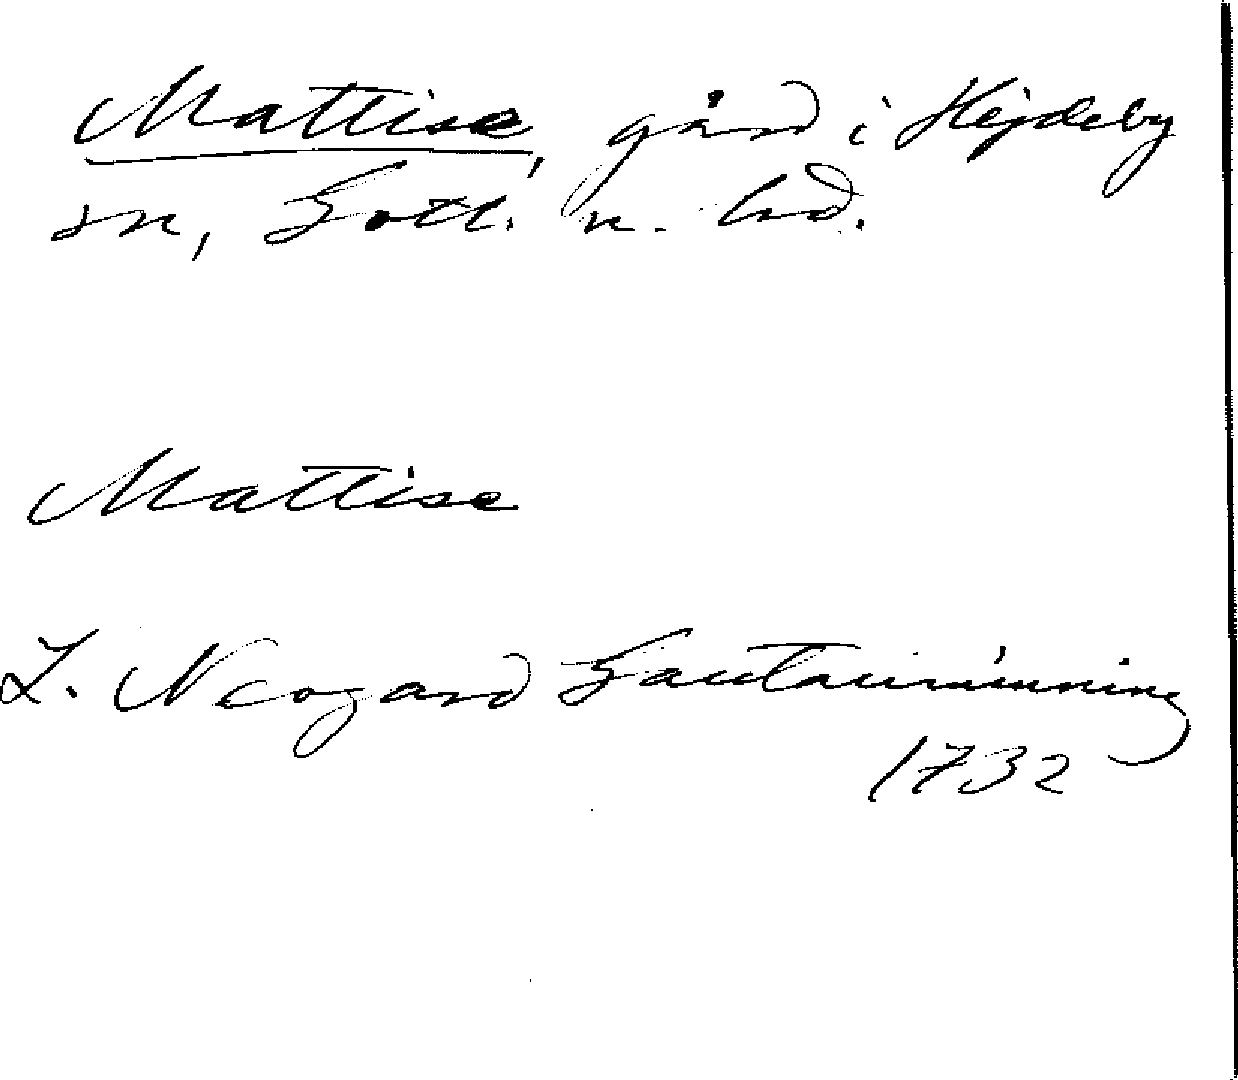 Mattise, gård i Hejdeby
sn, Gotl. n. hd.
Mattise
L. Neogard Gautauminning
1732